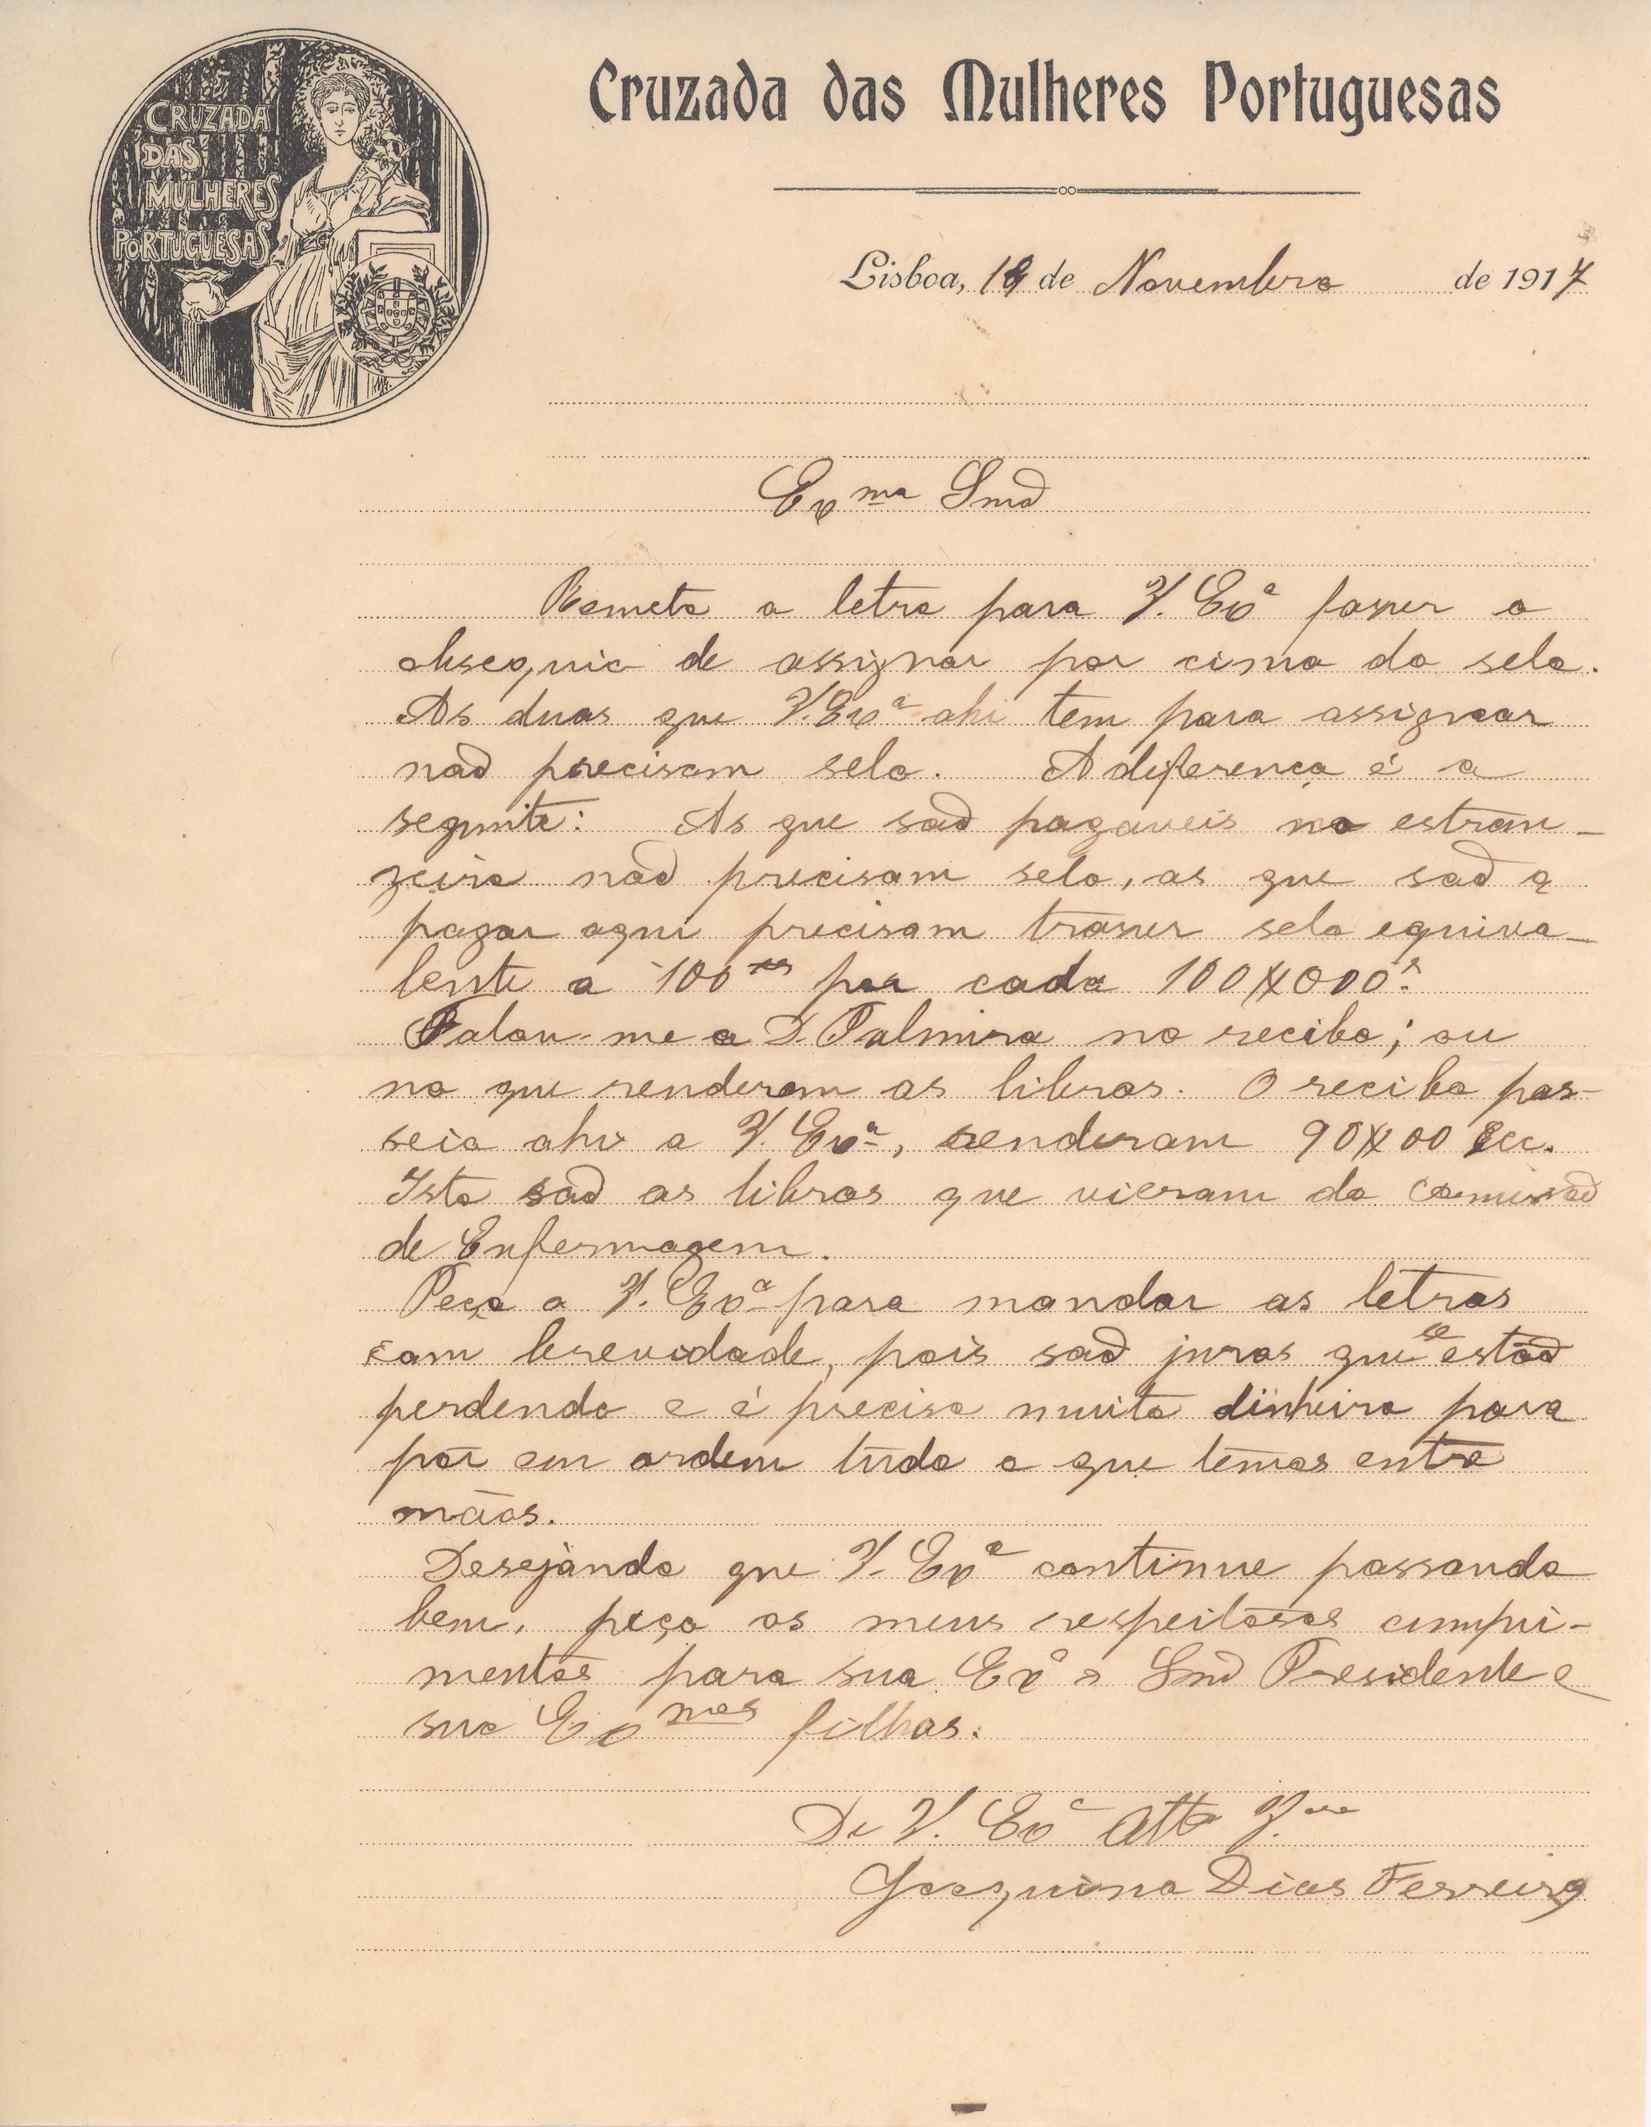 Cruzada das Mulheres Portuguesas
CRUZADA
DAS
MULHERES
PORTUGUESAS
Lisboa, 19 de Novembro de 1917
Exma Snrã
Remeto a letra para V. Exa faser o
obsequio de assignar por cima do selo.
As duas que V. Exa ahi tem para assignar
não precisam selo. A diferença é a
seguinte: As que são pagaveis no estran-
geiro não precisam selo, as que são a
pagar aqui precisam traser selo equiva-
lente a 100rs por cada 100$000rs
Falou-me a D. Palmira no recibo; ou
no que renderam as libras. O recibo pas-
sei-o ahi a V. Exa, renderam 90$00
Isto são as libras que vieram da Comissão
de Enfermagem.
Peço a V. Exa para mandar as letras
com brevidade, pois são juros que se estão
perdendo e é preciso muito dinheiro para
pôr em ordem tudo o que temos entre
mãos.
Desejando que V. Exa continue passando
bem, peço os meus respeitosos cumpri-
mentos para sua Exa o Snr Presidente e
sua Exmas filhas.
De V. Exa Atta V.ora
Joaquina Dias Ferreira